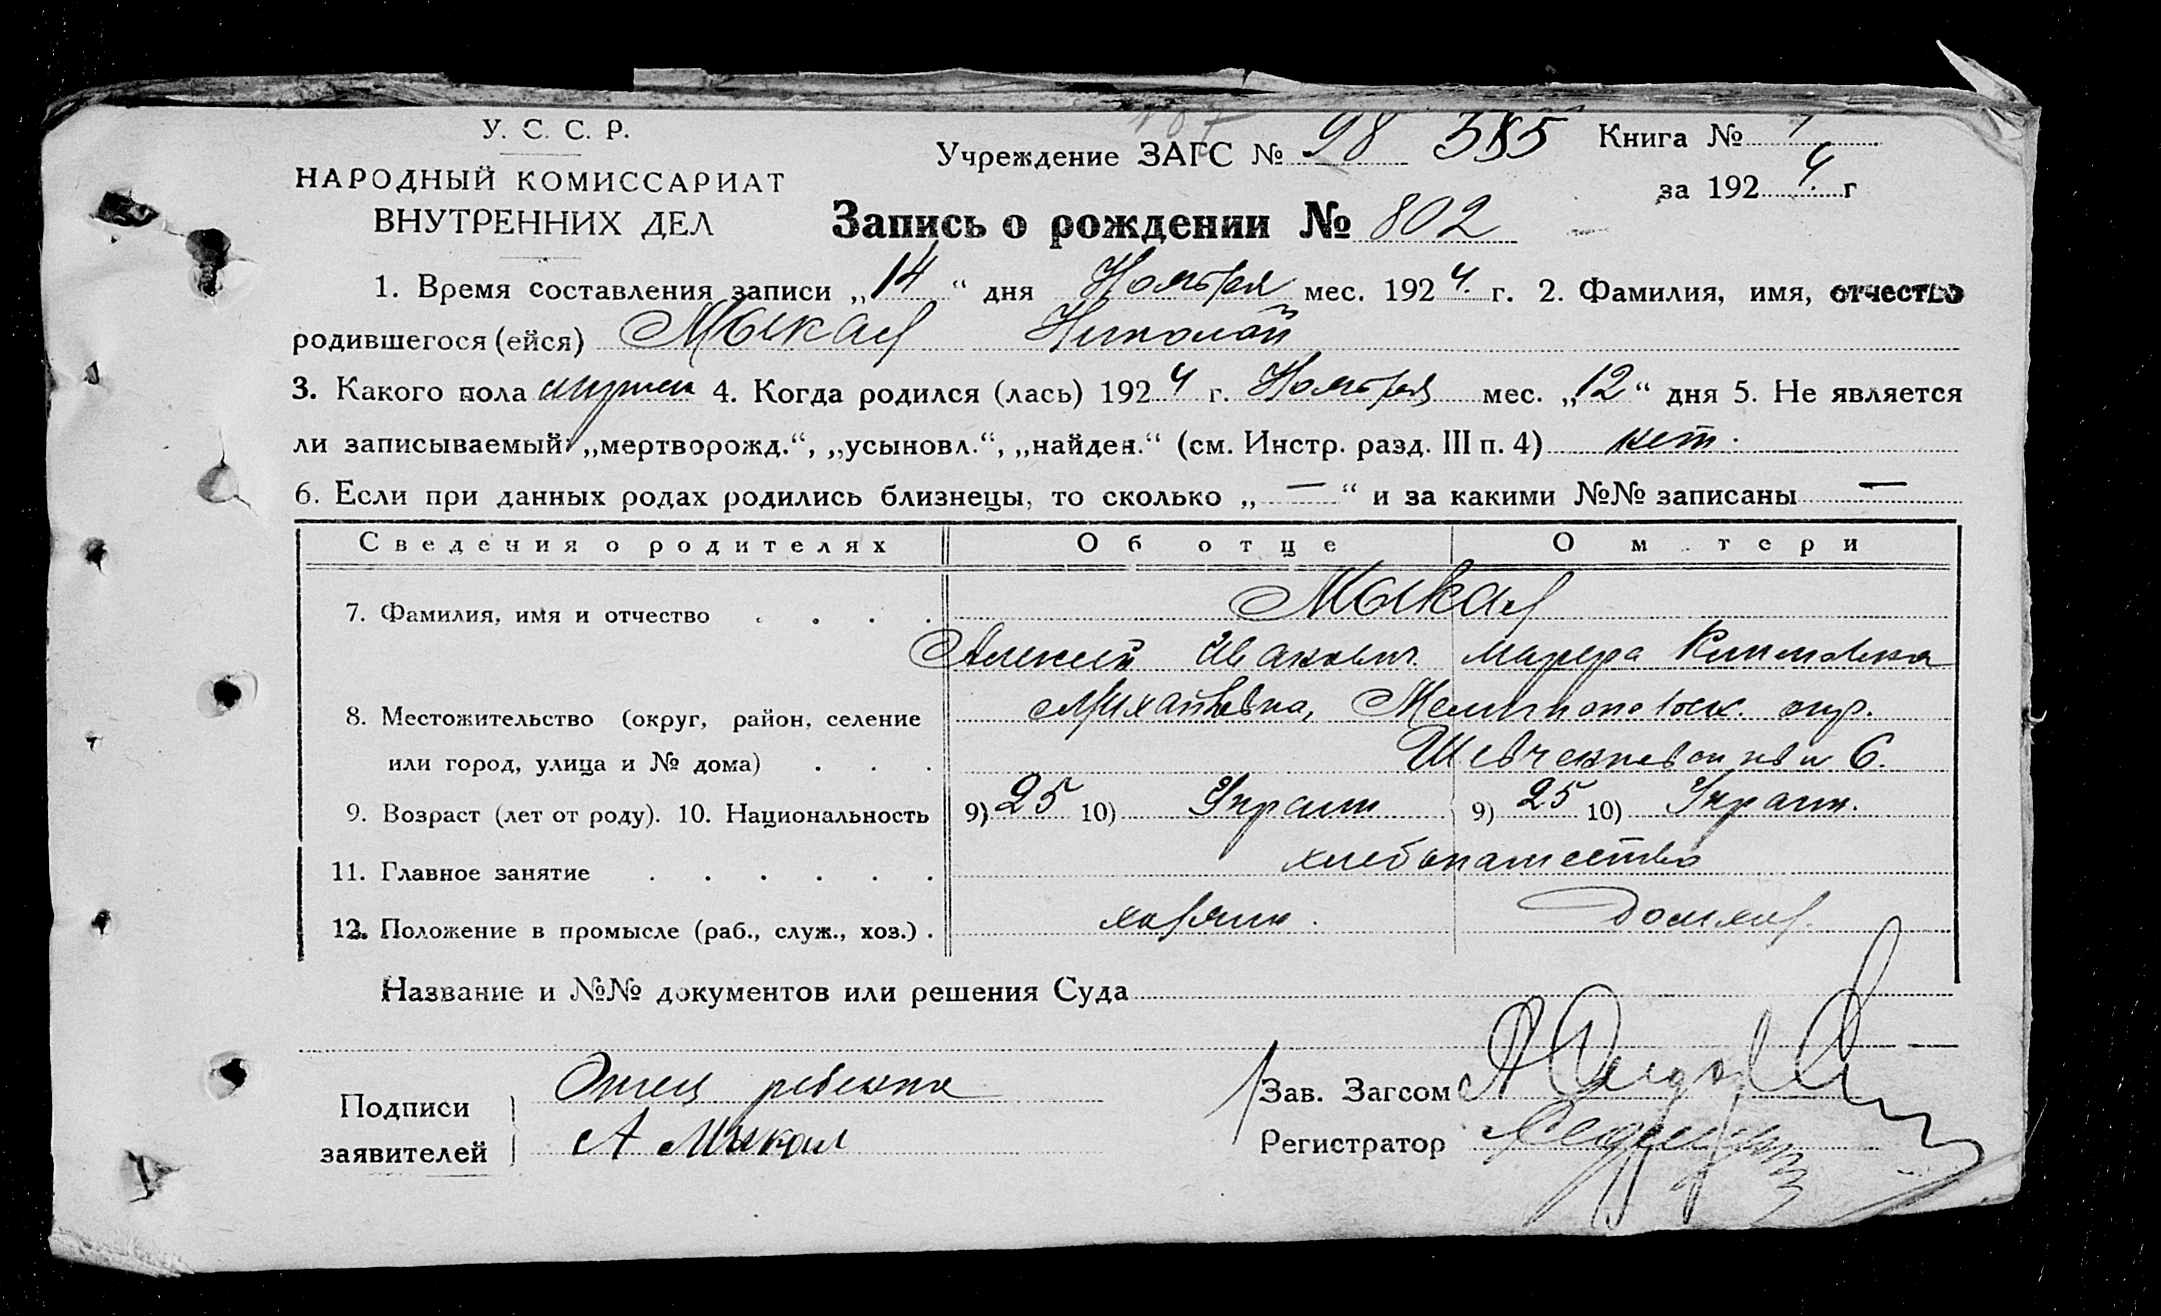 У. С. С. Р.
НАРОДНЫЙ КОМИССАРИАТ
ВНУТРЕННИХ ДЕЛ
Учреждение ЗАГС № 98 Книга №
за 192 4 г
Запись о рождении № 802
1. Время составления записи „14“ дня Ноября мес. 1924. г. 2. Фамилия, имя, отчество
родившегося (ейся) Мыкал Николай
3. Какого пола мужск 4. Когда родился (лась) 1924 г. Ноября мес. „12“ дня 5. Не является
ли записываемый „мертворожд.“, „усыновл.“, „найден.“ (см. Инстр. разд. III п. 4) нет.
6. Если при данных родах родились близнецы, то сколько „—“ и за какими №№ записаны —
Сведения о родителях Об отце О м тери
7. Фамилия, имя и отчество . . . . Мыкал
Алексей Иванович
8. Местожительство (округ, район, селение Михайловка, Мелитопольск. окр.
или город, улица и № дома) . . . 6.
9. Возраст (лет от роду). 10. Национальность 9) 25 10) Украин 9) 25 10) Украин.
11. Главное занятие . . . . . . хлебопашество
12. Положение в промысле (раб., служ., хоз.) . хозяин. Домхоз.
Название и №№ документов или решения Суда
Подписи
заявителей
Отец ребенка
А Мыкал
Зав. Загсом
Регистратор